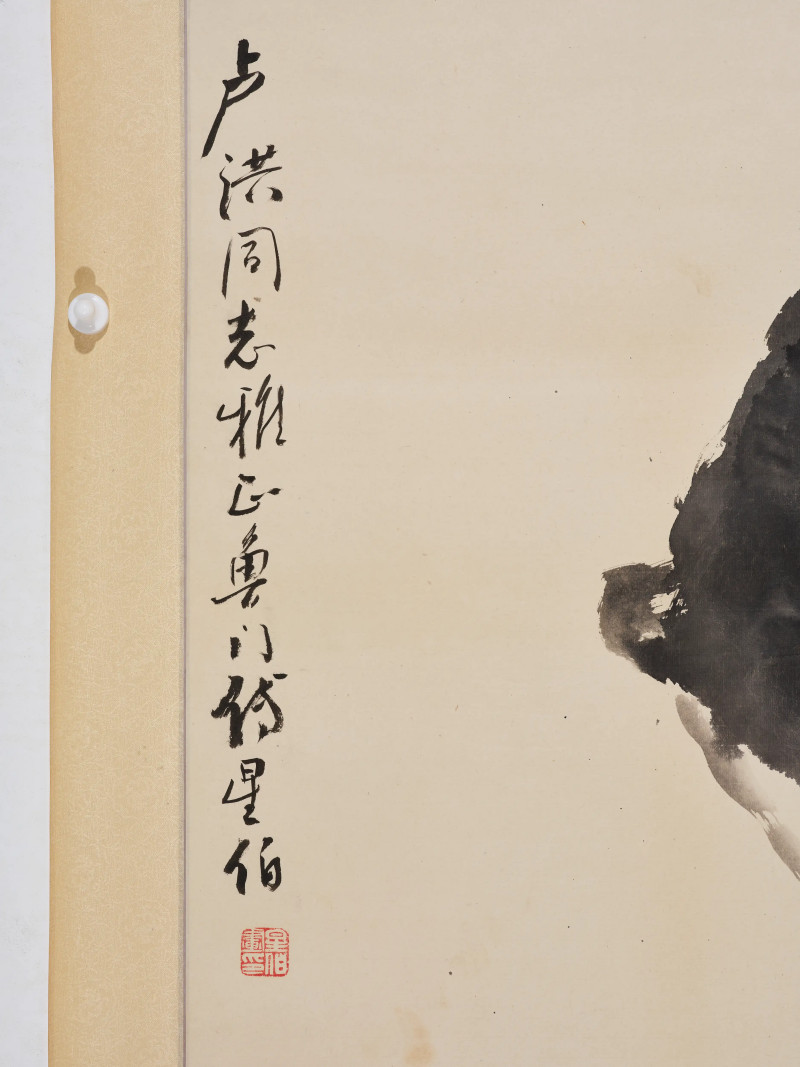 卢洪同志雅正鲁门傅星伯
星伯画印